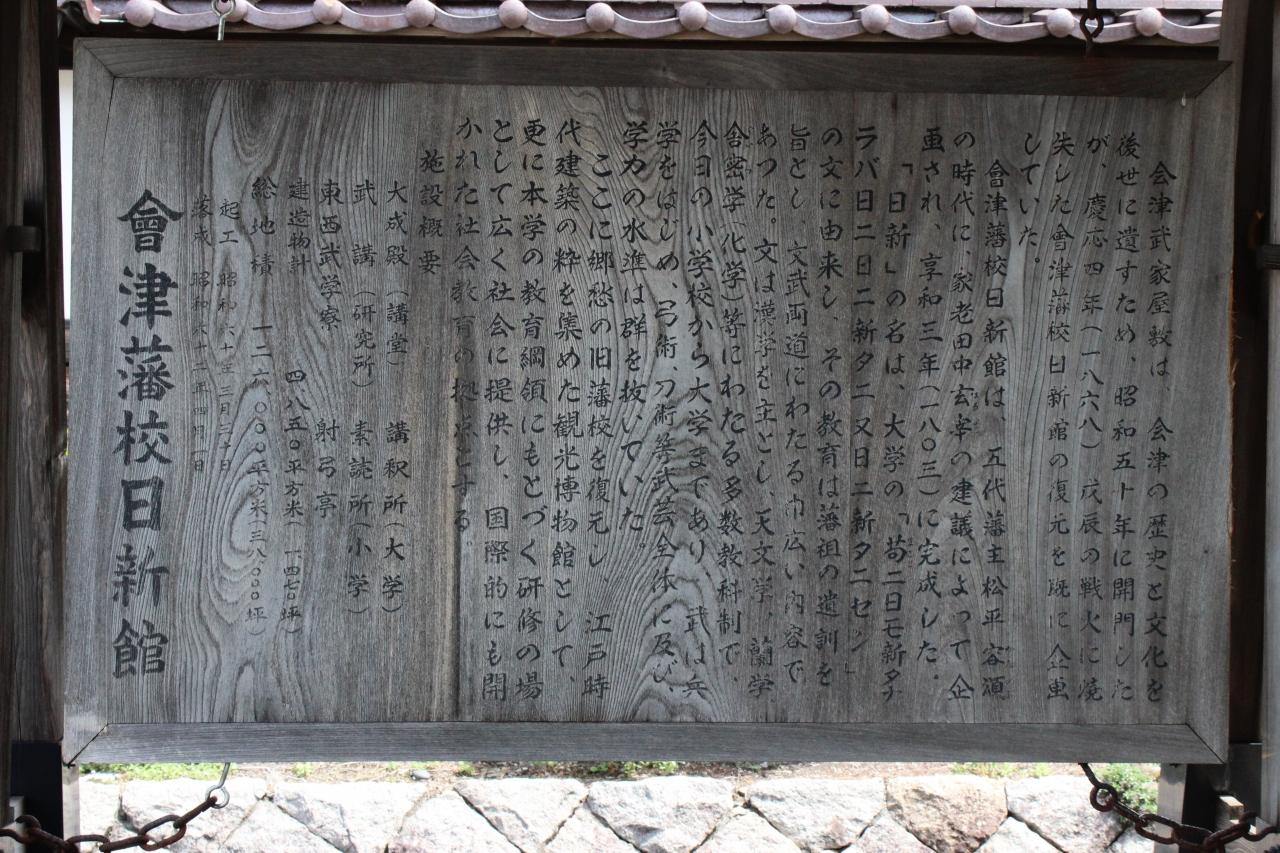 会津武家屋敷は、会津の歴史と文化を
後世に遺すため、昭和五十年に開門した
が、慶応四年(一八六八)戊辰の戦火に焼
失した會津藩校日新館の復元を既に企画
していた。
會津藩校日新館は、五代藩主松平容頌
の時代に、家老田中玄宰の建議によって企
画され、享和三年(一八〇三)に完成した。
「日新」の名は、大学の「苟二日モ新タナ
ラバ日二日二新タ二又日二新タ二セン」
の文に由来し、その教育は藩祖の遺訓を
旨とし、文武両道にわたる巾広い内容で
あつた。文は漢学を主とし、天文学、蘭学
舎密学(化学)等にわたる多数教科制で、
今日の小学校から大学まであり、武は兵
学をはじめ、弓術、刀術等武芸全体に及び、
学力の水準は群を抜いていた。
ここに郷愁の旧藩校を復元し、江戸時
代建築の粋を集めた観光博物館として、
更に本学の教育綱領にもとづく研修の場
として広く社会に提供し、国際的にも開
かれた社会教育の拠点とする
施設概要
大成殿(講堂) 講釈所(大学)
武 講(研究所) 素読所(小学)
東西武学寮 射弓亭
建造物計 四八五〇平方米(一四七〇坪)
総地積 一二六、〇〇〇平方米(三八、〇〇〇坪)
起工 昭和六十年三月三十日
落成 昭和六十二年四月 日
會津藩校日新館